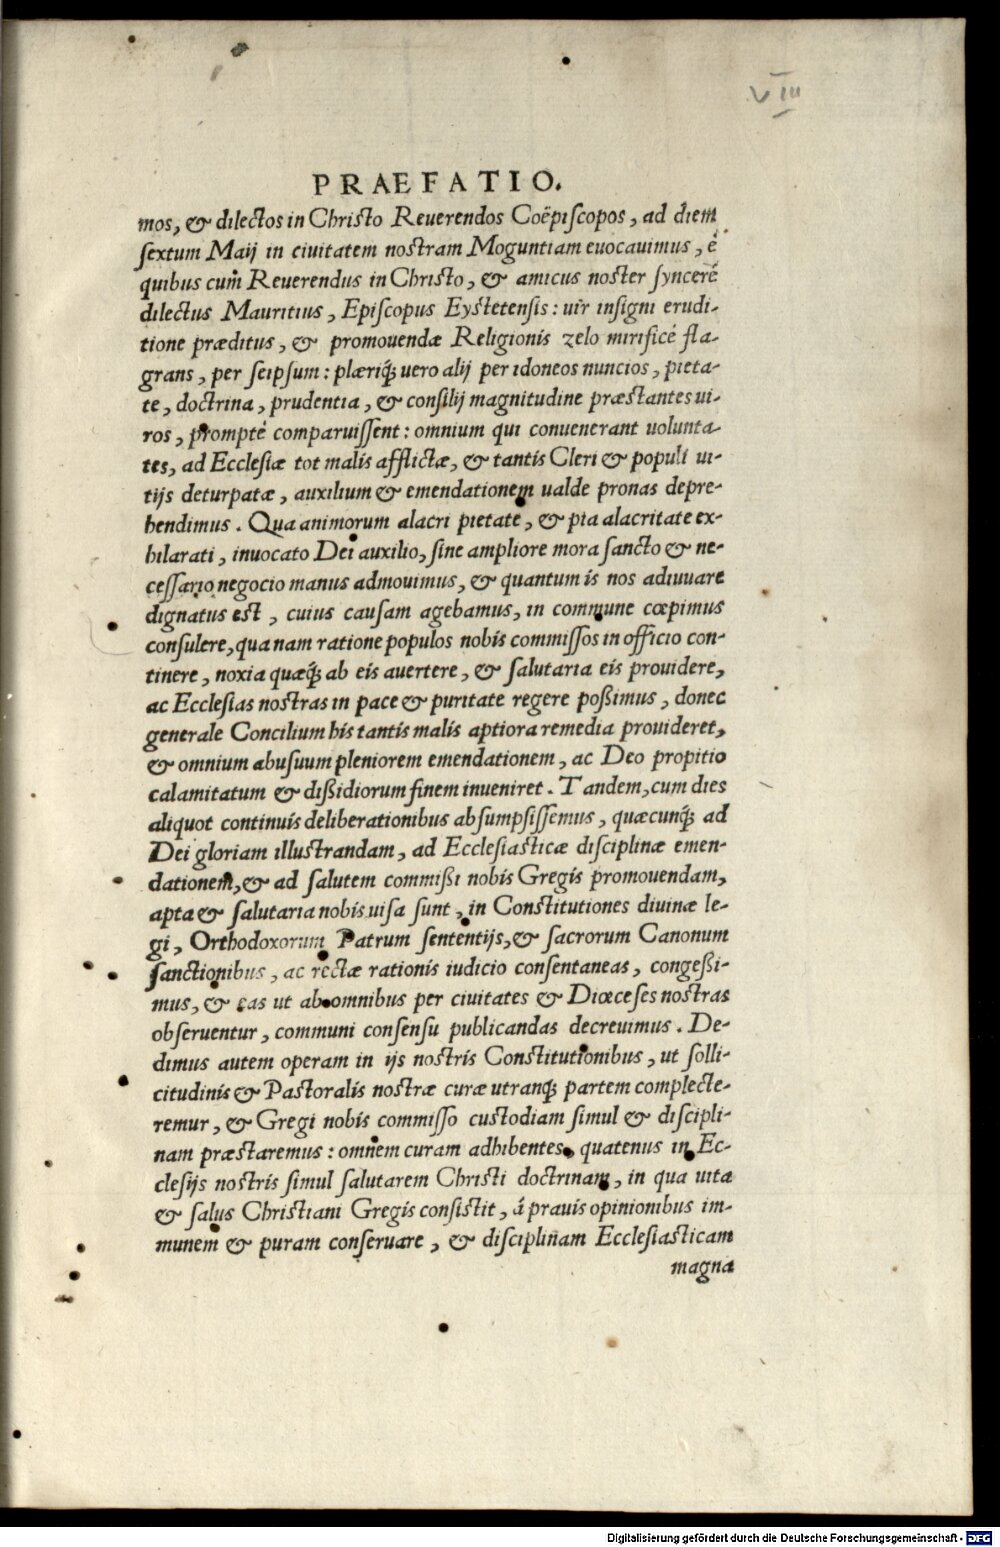 VIII
PRAEFATIO.
mos, & dilectos in Christo Reuerendos Coëpiscopos, ad diem
sextum Maij in ciuitatem nostram Moguntiam euocauimus, è
quibus cum Reuerendus in Christo, & amicus noster syncerè
dilectus Mauritius, Episcopus Eystetensis: uir insigni erudi-
tione præditus, & promouendæ Religionis zelo mirificè fla-
grans, per seipsum: plæriq́; uero alij per idoneos nuncios, pieta-
te, doctrina, prudentia, & consilij magnitudine præstantes ui-
ros, promptè comparuissent: omnium qui conuenerant uolunta-
tes, ad Ecclesiæ tot malis afflictæ, & tantis Cleri & populi ui-
tijs deturpatæ, auxilium & emendationem ualde pronas depre-
hendimus. Qua animorum alacri pietate, & pia alacritate ex-
hilarati, inuocato Dei auxilio, sine ampliore mora sancto & ne-
cessario negocio manus admouimus, & quantum is nos adiuuare
dignatus est, cuius causam agebamus, in commune cœpimus
consulere, qua nam ratione populos nobis commissos in officio con-
tinere, noxia quæq́; ab eis auertere, & salutaria eis prouidere,
ac Ecclesias nostras in pace & puritate regere poßimus, donec
generale Concilium his tantis malis aptiora remedia prouideret,
& omnium abusuum pleniorem emendationem, ac Deo propitio
calamitatum & dißidiorum finem inueniret. Tandem, cum dies
aliquot continuis deliberationibus absumpsissemus, quæcunq́; ad
Dei gloriam illustrandam, ad Ecclesiasticæ disciplinæ emen-
dationem, & ad salutem commißi nobis Gregis promouendam,
apta & salutaria nobis uisa sunt, in Constitutiones diuinæ le-
gi, Orthodoxorum Patrum sententijs, & sacrorum Canonum
sanctionibus, ac rectæ rationis iudicio consentaneas, congeßi-
mus, & eas ut ab omnibus per ciuitates & Diœceses nostras
obseruentur, communi consensu publicandas decreuimus. De-
dimus autem operam in ijs nostris Constitutionibus, ut solli-
citudinis & Pastoralis nostræ curæ utranq́; partem complecte-
remur, & Gregi nobis commisso custodiam simul & discipli-
nam præstaremus: omnem curam adhibentes, quatenus in Ec-
clesijs nostris simul salutarem Christi doctrinam, in qua uita
& salus Christiani Gregis consistit, à prauis opinionibus im-
munem & puram conseruare, & disciplinam Ecclesiasticam
magna
Digitalisierung gefördert durch die Deutsche Forschungsgemeinschaft - DFG